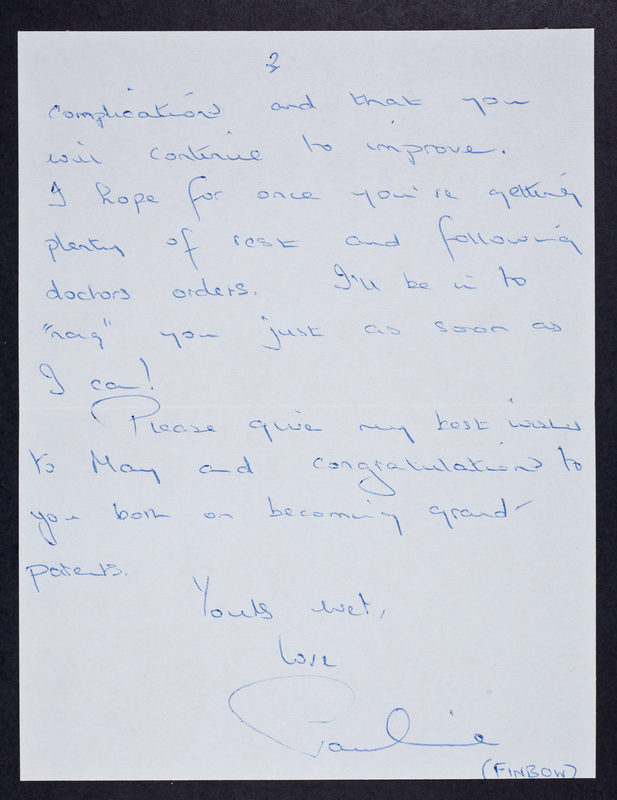 2
complications and that you
will continue to improve.
I hope for once you're getting
plenty of rest and following
doctors orders. I'll be in to
"nag" you just as soon as
I can!
Please give my best wishes
to May and congratulations to
you both on becoming grand-
parents.
Yours
love
Pauline
(FINBOW)